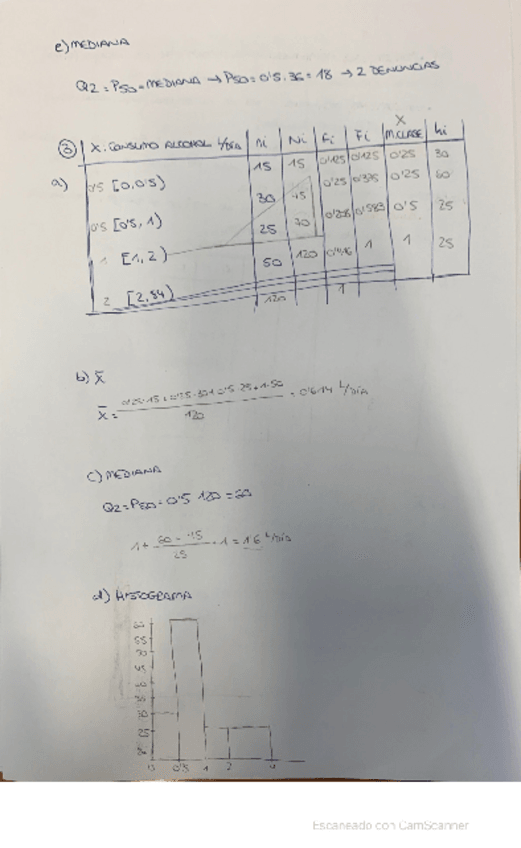 e) MEDIANA
Q2 = P50 = MEDIANA → P50 = 0'5 · 36 = 18 → 2 DENUNCIAS
③ X. CONSUMO ALCOHOL L/DÍA ni Ni fi Fi X M.CLASE hi
a) 0'5 [0,0'5) 15 15 0'125 0'125 0'25 30
0'5 [0'5, 1) 30 45 0'25 0'375 0'25 60
1 [1, 2) 25 70 0'583 0'5 25
2 [2, 4) 50 120 1 1 25
120 1
b) x̄
x̄ = 120 = 0'614 L/DÍA
c) MEDIANA
Q2 = P50 = 0'5 · 120 = 60
1 + 60 - 45 / 25 · 1 = 1'6 L/DÍA
d) HISTOGRAMA
30
25
0 0'5 1 2 4
Escaneado con CamScanner